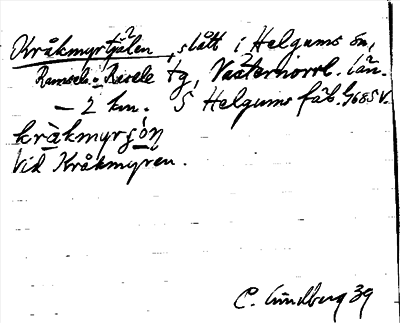 Kråkmyrtjälen, slått i Helgums sn,
Ramsele o Resele tg, Västernorrl. län.
– 2 km. S Helgums fäb. G68SV.
kråkmyrsǫn
Vid Kråkmyren.
C. Lindberg 39